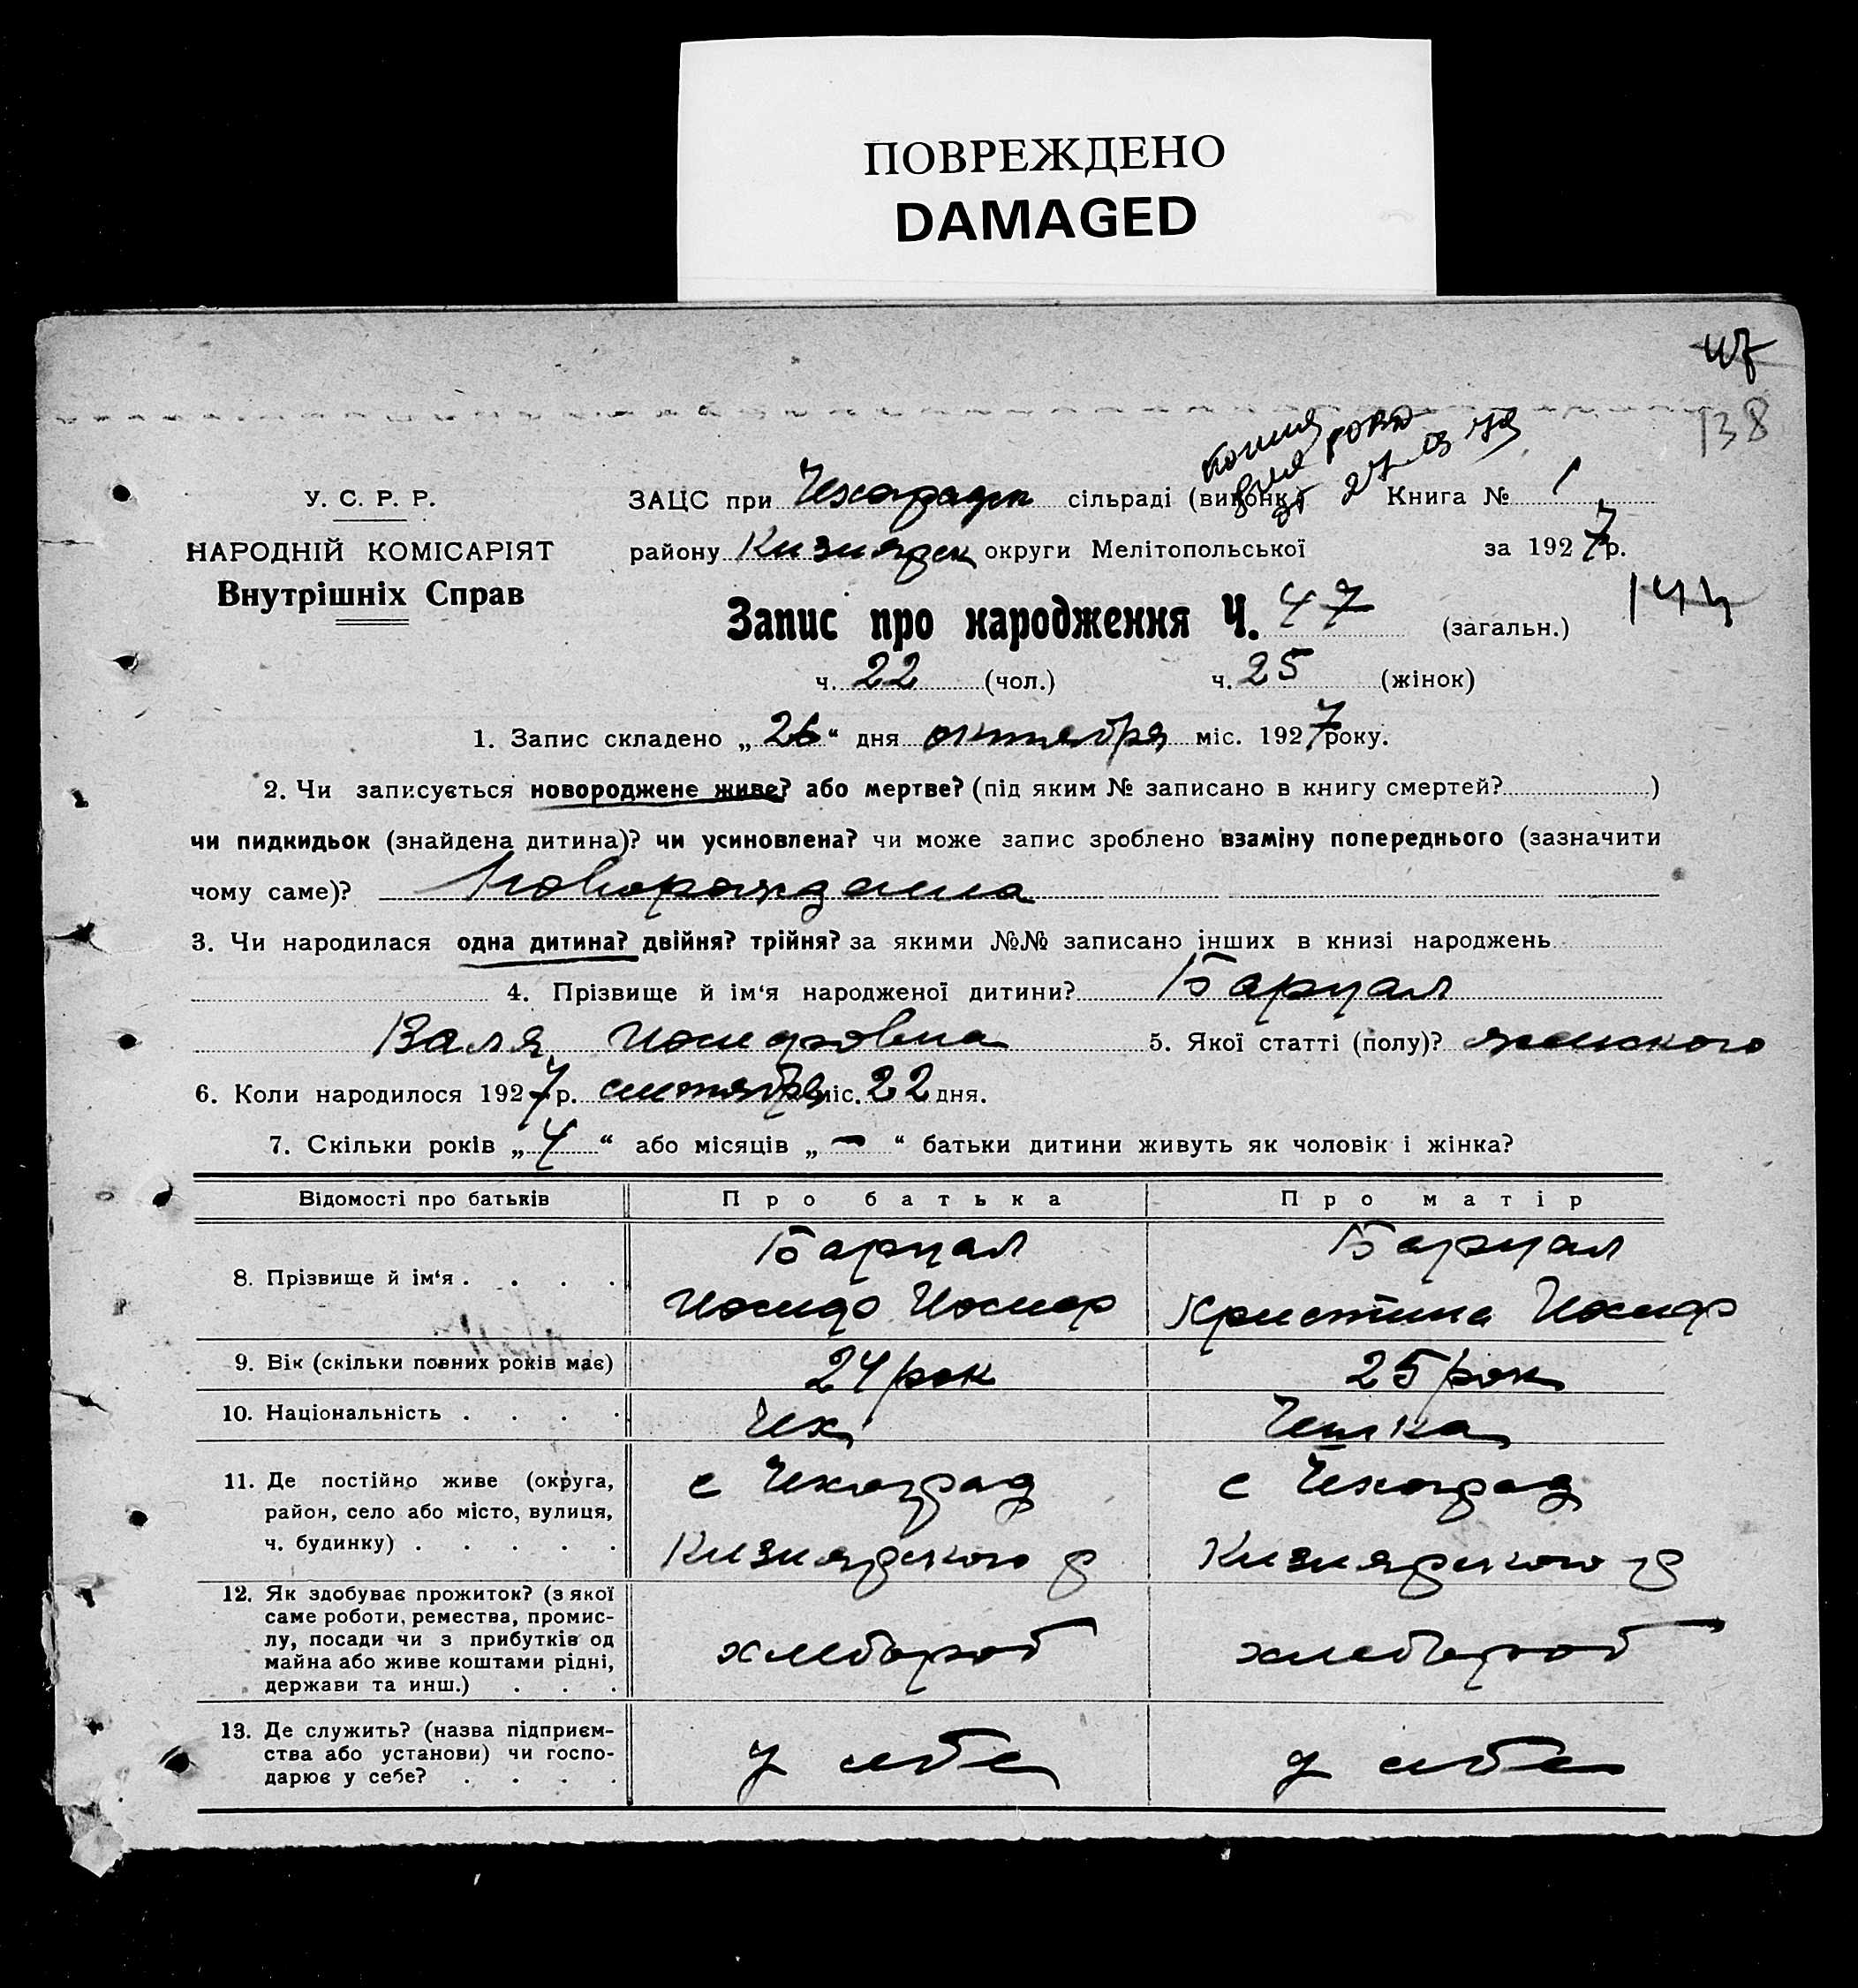 ПОВРЕЖДЕНО
DAMAGED
47
138
копия
27 03 79
У. С. Р. Р.
НАРОДНІЙ КОМІСАРІЯТ
Внутрішніх Справ
ЗАЦС при Чехоградск сільраді (виконк.) Книга № 1
району Кизиярск округи Мелітопольської за 1927 р.
Запис про народження Ч. 47 (загальн.)
144
ч. 22 (чол.) ч. 25 (жінок)
1. Запис складено „26“ дня октября міс. 1927 року.
2. Чи записується новороджене живе? або мертве? (під яким № записано в книгу смертей? )
чи пидкидьок (знайдена дитина)? чи усиновлена? чи може запис зроблено взаміну попереднього (зазначити
чому саме)? Новорождана
3. Чи народилася одна дитина? двійня? трійня? за якими №№ записано інших в книзі народжень
4. Прізвище й ім‘я народженої дитини? Барцал
Валя Иосифовна 5. Якої статті (полу)? женского
6. Коли народилося 1927 р. сентября міс. 22 дня.
7. Скільки років „4“ або місяців „—“ батьки дитини живуть як чоловік і жінка?
Відомості про батьків Про батька Про матір
8. Прізвище й ім‘я . . . . Барцал Барцал
Иосифо Иосиф Кристина Иосиф
9. Вік (скільки повних років має) 24 рок 25 рок
10. Національність . . . . Чех Чешка
11. Де постійно живе (округа, с Чехоград с Чехоград
район, село або місто, вулиця,
ч. будинку) . . . . . Кизиярского р Кизиярского р
12. Як здобуває прожиток? (з якої
саме роботи, ремества, промис-
лу, посади чи з прибутків од хлебороб хлебороб
майна або живе коштами рідні,
держави та инш.) . . .
13. Де служить? (назва підприєм-
ства або установи) чи госпо- у себе у себе
дарює у себе? . . . .